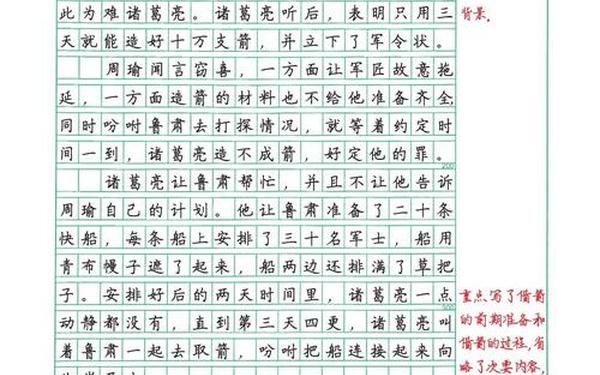 此为难诸葛亮。诸葛亮听后，表明只用三
天就能造好十万支箭，并立下了军令状。
周瑜闻言窃喜，一方面让军匠故意拖
延，一方面造箭的材料也不给他准备齐全，
同时吩咐鲁肃去打探情况，就等着约定时
间一到，诸葛亮造不成箭，好定他的罪。
200
诸葛亮让鲁肃帮忙，并且不让他告诉
周瑜自己的计划。他让鲁肃准备了二十条
快船，每条船上安排了三十名军士，船用
青布幔子遮了起来，船两边还排满了草把
子。安排好后的两天时间里，诸葛亮一点
300
动静都没有，直到第三天四更，诸葛亮叫
着鲁肃一起去取箭，吩咐把船连接起来向
背景。
重点写了借箭
的前期准备和
借箭的过程，省
略了次要内容，